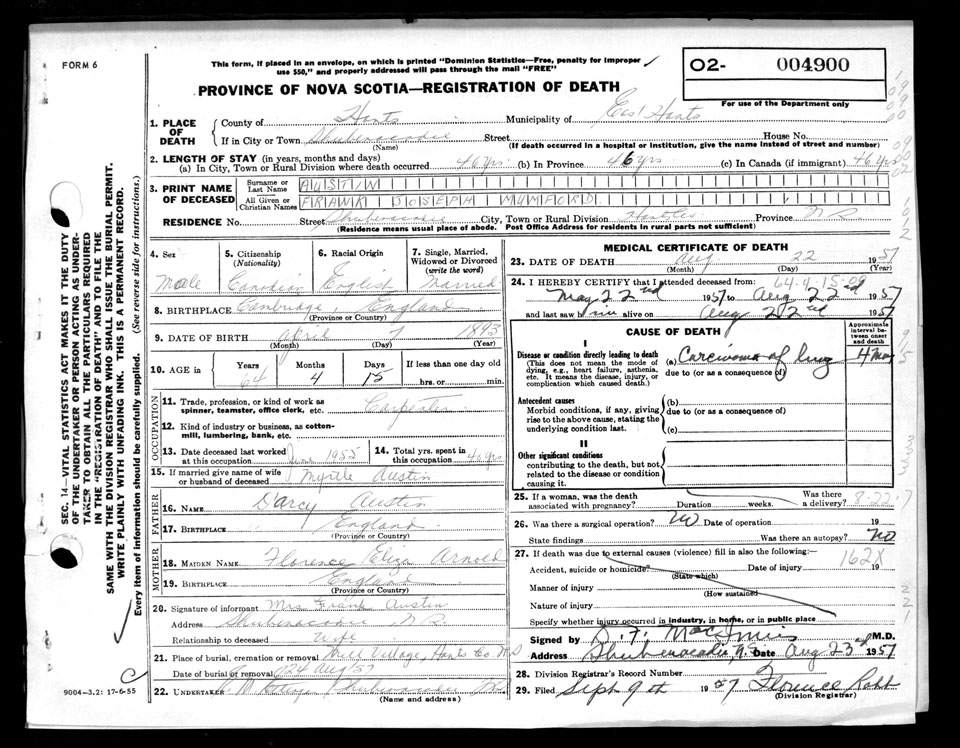 FORM 6
This form, if placed in an envelope, on which is printed "Dominion Statistics—Free, penalty for improper
use $50," and properly addressed will pass through the mail "FREE"
PROVINCE OF NOVA SCOTIA—REGISTRATION OF DEATH
O2- 004900
For use of the Department only
SEC. 14—VITAL STATISTICS ACT MAKES IT THE DUTY
OF THE UNDERTAKER OR PERSON ACTING AS UNDER-
TAKER TO OBTAIN ALL THE PARTICULARS REQUIRED
IN THE "REGISTRATION OF DEATH" AND TO FILE THE
SAME WITH THE DIVISION REGISTRAR WHO SHALL ISSUE THE BURIAL PERMIT.
WRITE PLAINLY WITH UNFADING INK. THIS IS A PERMANENT RECORD.
Every item of information should be carefully supplied. (See reverse side for instructions.)
1. PLACE OF DEATH County of Hants Municipality of East Hants
If in City or Town Shubenacadie Street House No.
(Name) (If death occurred in a hospital or institution, give the name instead of street and number)
2. LENGTH OF STAY (in years, months and days)
(a) In City, Town or Rural Division where death occurred 46 yrs. (b) In Province 46 yrs (c) In Canada (if immigrant) 46 yrs
3. PRINT NAME OF DECEASED Surname or Last Name AUSTIN
All Given or Christian Names FRANK JOSEPH MUMFORD
RESIDENCE No. Street Shubenacadie City, Town or Rural Division Hants Province N S
(Residence means usual place of abode. Post Office Address for residents in rural parts not sufficient)
4. Sex Male
5. Citizenship (Nationality) Canadian
6. Racial Origin English
7. Single, Married, Widowed or Divorced (write the word) Married
8. BIRTHPLACE Cambridge England
(Province or Country)
9. DATE OF BIRTH April 7 1893
(Month) (Day) (Year)
10. AGE in Years 64 Months 4 Days 15 If less than one day old
hrs. or min.
OCCUPATION
11. Trade, profession, or kind of work as
spinner, teamster, office clerk, etc. Carpenter
12. Kind of industry or business, as cotton-
mill, lumbering, bank, etc.
13. Date deceased last worked
at this occupation June 1955
14. Total yrs. spent in
this occupation 40 yrs
15. If married give name of wife
or husband of deceased Myrtle Austin
FATHER
16. NAME D'arcy Austin
17. BIRTHPLACE England
(Province or Country)
MOTHER
18. MAIDEN NAME Florence Eliza Arnold
19. BIRTHPLACE England
(Province or Country)
20. Signature of informant Mrs Frank Austin
Address Shubenacadie, N S
Relationship to deceased Wife
21. Place of burial, cremation or removal Mill Village, Hants Co. N S
Date of burial or removal 24 Aug 57
22. UNDERTAKER Shubenacadie NS
(Name and address)
9004-3.2: 17-6-55
MEDICAL CERTIFICATE OF DEATH
23. DATE OF DEATH Aug 22 1957
(Month) (Day) (Year)
64-4-15-09
24. I HEREBY CERTIFY that I attended deceased from:
May 22nd 1957 to Aug 22nd 1957
and last saw him alive on Aug 22nd 1957
CAUSE OF DEATH
Approximate interval between onset and death
I
Disease or condition directly leading to death
(This does not mean the mode of
dying, e.g., heart failure, asthenia,
etc. It means the disease, injury, or
complication which caused death.)
(a) Carcinoma of lung 4 mos
due to (or as a consequence of)
Antecedent causes
Morbid conditions, if any, giving
rise to the above cause, stating the
underlying condition last.
(b)
due to (or as a consequence of)
(c)
II
Other significant conditions
contributing to the death, but not
related to the disease or condition
causing it.
25. If a woman, was the death
associated with pregnancy? Duration weeks. Was there
a delivery?
8-22-7
26. Was there a surgical operation? No Date of operation 19
State findings Was there an autopsy? No
27. If death was due to external causes (violence) fill in also the following:—
Accident, suicide or homicide Date of injury 19
(State which)
162X
Manner of injury
(How sustained)
Nature of injury
Specify whether injury occurred in industry, in home, or in public place
Signed by D. F. MacInnis M.D.
Address Shubenacadie, N.S. Date Aug 23rd 1957
28. Division Registrar's Record Number
29. Filed Sept 9th 1957 Florence Robb
(Division Registrar)